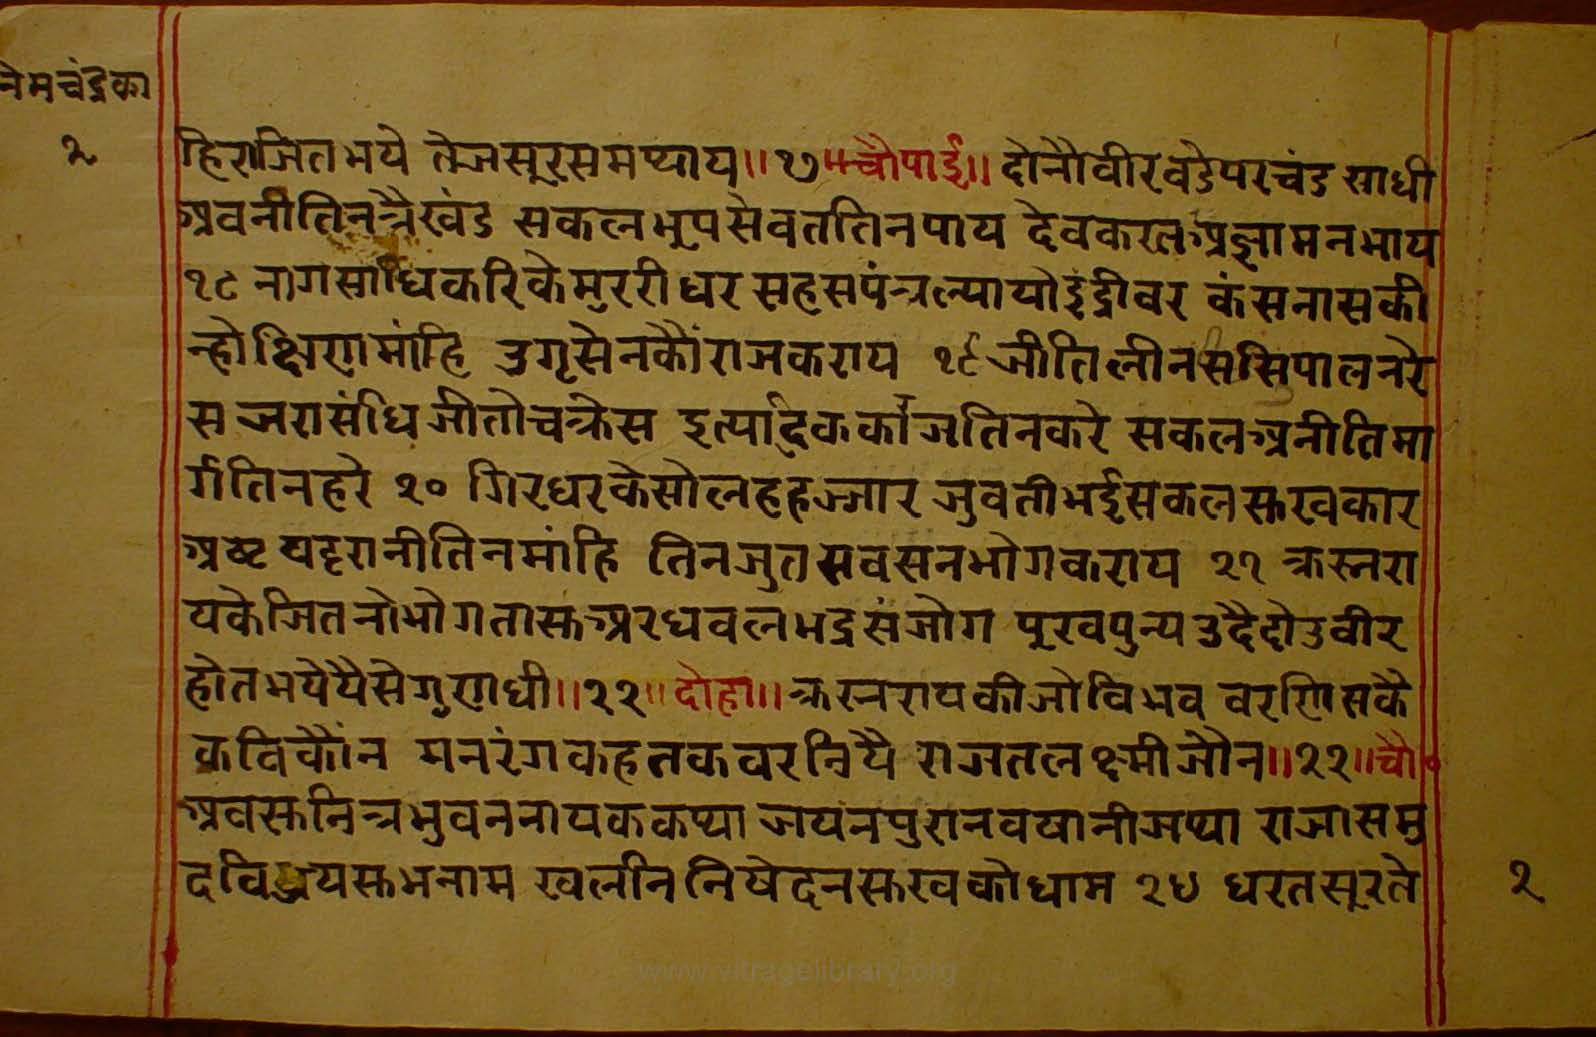 नेमचंद्रका
२
हिराजितभये तेजसूरसमप्याय॥१७॥चौपाई॥ दोनौवीरवडेपरचंड साधी
अवनीतिनत्रैखंड सकलभूपसेवततिनपाय देवकरतअज्ञामनभाय
१८ नागसाधिकरिकेमुररीधर सहसपंत्रल्यायोइंद्रीवर कंसनासकी
न्होक्षिणमांहि उगृसेनकौंराजकराय १९ जीतिलीनससिपालनरे
स जरासंधिजीतोचक्रेस इत्यादिककाजतिनकरे सकलअनीतिमा
र्गतिनहरे २० गिरधरकेसोलहहज्जार जुवतीभईसकलसुखकार
अष्टपट्टरानीतिनमांहि तिनजुतसवसनभोगकराय २१ क्रस्नरा
यकेजितनोभोग तासुअरधवलभद्रसंजोग पूरवपुन्यउदैदोउवीर
होतभयेयैसेगुणधी॥२२॥दोहा॥ क्रस्नरायकीजोविभव वरणिसकै
कविकौंन मनरंगकहतकवरनियै राजतलक्ष्मीजौन॥२३॥चौ०
अवसुनित्रभुवननायककथा जयनपुरानवषानीजथा राजासमु
दविजयसुभनाम खलीननिषेदनसुखकोधाम २४ धरतसूरते
२
www.vitragelibrary.org